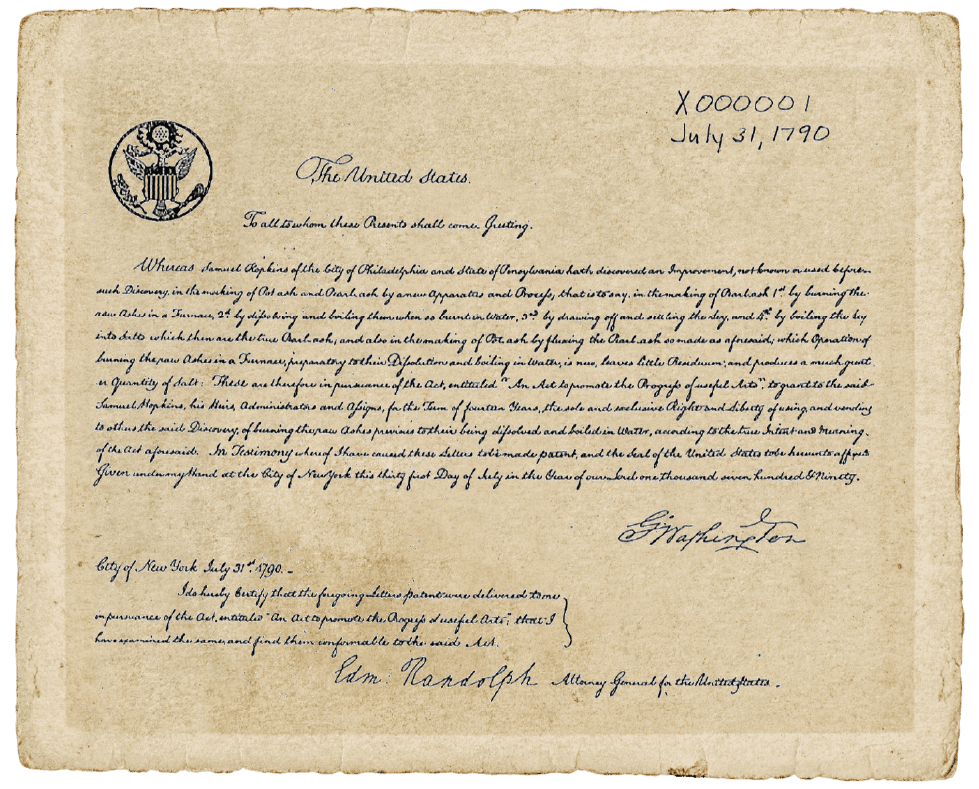 X000001
July 31, 1790
The United States.
To all to whom these Presents shall come, Greeting.
Whereas Samuel Hopkins of the City of Philadelphia and State of Pensylvania hath discovered an Improvement, not known or used before
such Discovery, in the making of Pot ash and Pearl ash by a new Apparatus and Process, that is to say, in the making of Pearl ash 1st by burning the
raw Ashes in a Furnace, 2d by dissolving and boiling them when so burnt in Water, 3rd by drawing off and settling the Ley, and 4th by boiling the Ley
into Salts which then are the true Pearl ash; and also in the making of Pot ash by fluxing the Pearl ash so made as aforesaid; which Operation of
burning the raw Ashes in a Furnace, preparatory to their Dissolution and boiling in Water, is new, leaves little Residuum; and produces a much great
er Quantity of Salt: These are therefore in pursuance of the Act, entituled "An Act to promote the Progress of useful Arts", to grant to the said
Samuel Hopkins, his Heirs, Administrators and Assigns, for the Term of fourteen Years, the sole and exclusive Right and Liberty of using, and vending
to others the said Discovery, of burning the raw Ashes previous to their being dissolved and boiled in Water, according to the true Intent and Meaning
of the Act aforesaid. In Testimony whereof I have caused these Letters to be made patent, and the Seal of the United States to be hereunto affixed
Given under my Hand at the City of New York this thirty first Day of July in the Year of our Lord one thousand seven hundred & Ninety.
G. Washington
City of New York July 31st 1790. -
I do hereby Certify that the foregoing Letters patent were delivered to me
in pursuance of the Act, entituled "An Act to promote the Progress of useful Arts"; that I
have examined the same, and find them conformable to the said Act.
Edm: Randolph Attorney General for the United States.